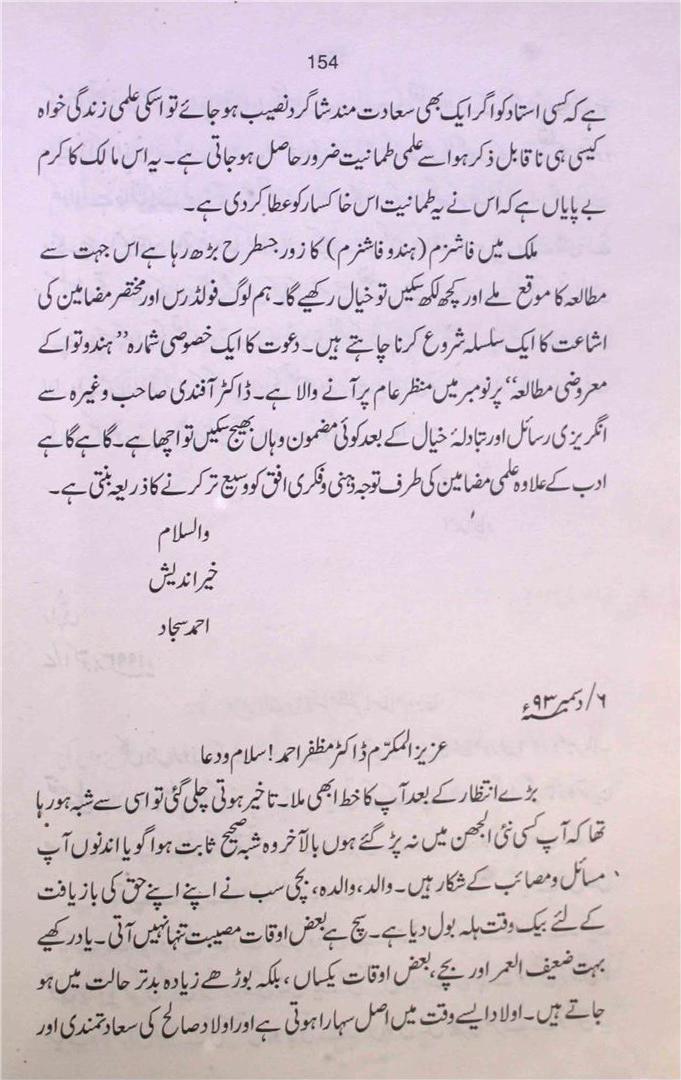 154
ہے کہ کسی استاد کو اگر ایک بھی سعادت مند شاگرد نصیب ہو جائے تو اسکی علمی زندگی خواہ
کیسی ہی ناقابل ذکر ہو اسے علمی طمانیت ضرور حاصل ہو جاتی ہے۔ یہ اس مالک کا کرم
بے پایاں ہے کہ اس نے یہ طمانیت اس خاکسار کو عطا کر دی ہے۔
ملک میں فاشزم (ہندو فاشنزم) کا زور جسطرح بڑھ رہا ہے اس جہت سے
مطالعہ کا موقع ملے اور کچھ لکھ سکیں تو خیال رکھیے گا۔ ہم لوگ فولڈرس اور مختصر مضامین کی
اشاعت کا ایک سلسلہ شروع کرنا چاہتے ہیں۔ دعوت کا ایک خصوصی شمارہ ”ہندوتوا کے
معروضی مطالعہ“ پر نومبر میں منظر عام پر آنے والا ہے۔ ڈاکٹر آفندی صاحب وغیرہ سے
انگریزی رسائل اور تبادلۂ خیال کے بعد کوئی مضمون وہاں بھیج سکیں تو اچھا ہے۔ گاہے گاہے
ادب کے علاوہ علمی مضامین کی طرف توجہ ذہنی و فکری افق کو وسیع تر کرنے کا ذریعہ بنتی ہے۔
والسلام
خیر اندیش
احمد سجاد
۶/ دسمبر ۹۳ء
عزیز المکرّم ڈاکٹر مظفر احمد! سلام و دعا
بڑے انتظار کے بعد آپ کا خط ابھی ملا۔ تاخیر ہوتی چلی گئی تو اسی سے شبہ ہو رہا
تھا کہ آپ کسی نئی الجھن میں نہ پڑ گئے ہوں بالآخر وہ شبہ صحیح ثابت ہوا گویا اندنوں آپ
مسائل و مصائب کے شکار ہیں۔ والد، والدہ، بچی سب نے اپنے اپنے حق کی بازیافت
کے لئے بیک وقت ہلہ بول دیا ہے۔ سچ ہے بعض اوقات مصیبت تنہا نہیں آتی۔ یاد رکھیے
بہت ضعیف العمر اور بچے، بعض اوقات یکساں، بلکہ بوڑھے زیادہ بدتر حالت میں ہو
جاتے ہیں۔ اولاد ایسے وقت میں اصل سہارا ہوتی ہے اور اولاد صالح کی سعادتمندی اور